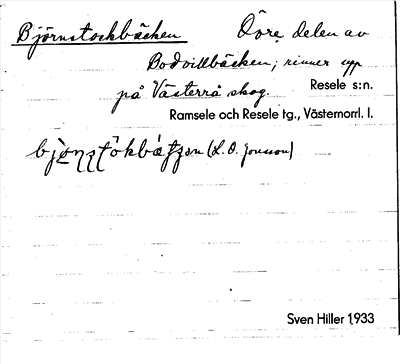 Björnstockbäcken Övre delen av
Bodvillbäcken; rinner upp
på Västerrå skog. Resele s:n.
Ramsele och Resele tg., Västernorrl. l.
(L. O. Jonsson)
Sven Hiller 1933